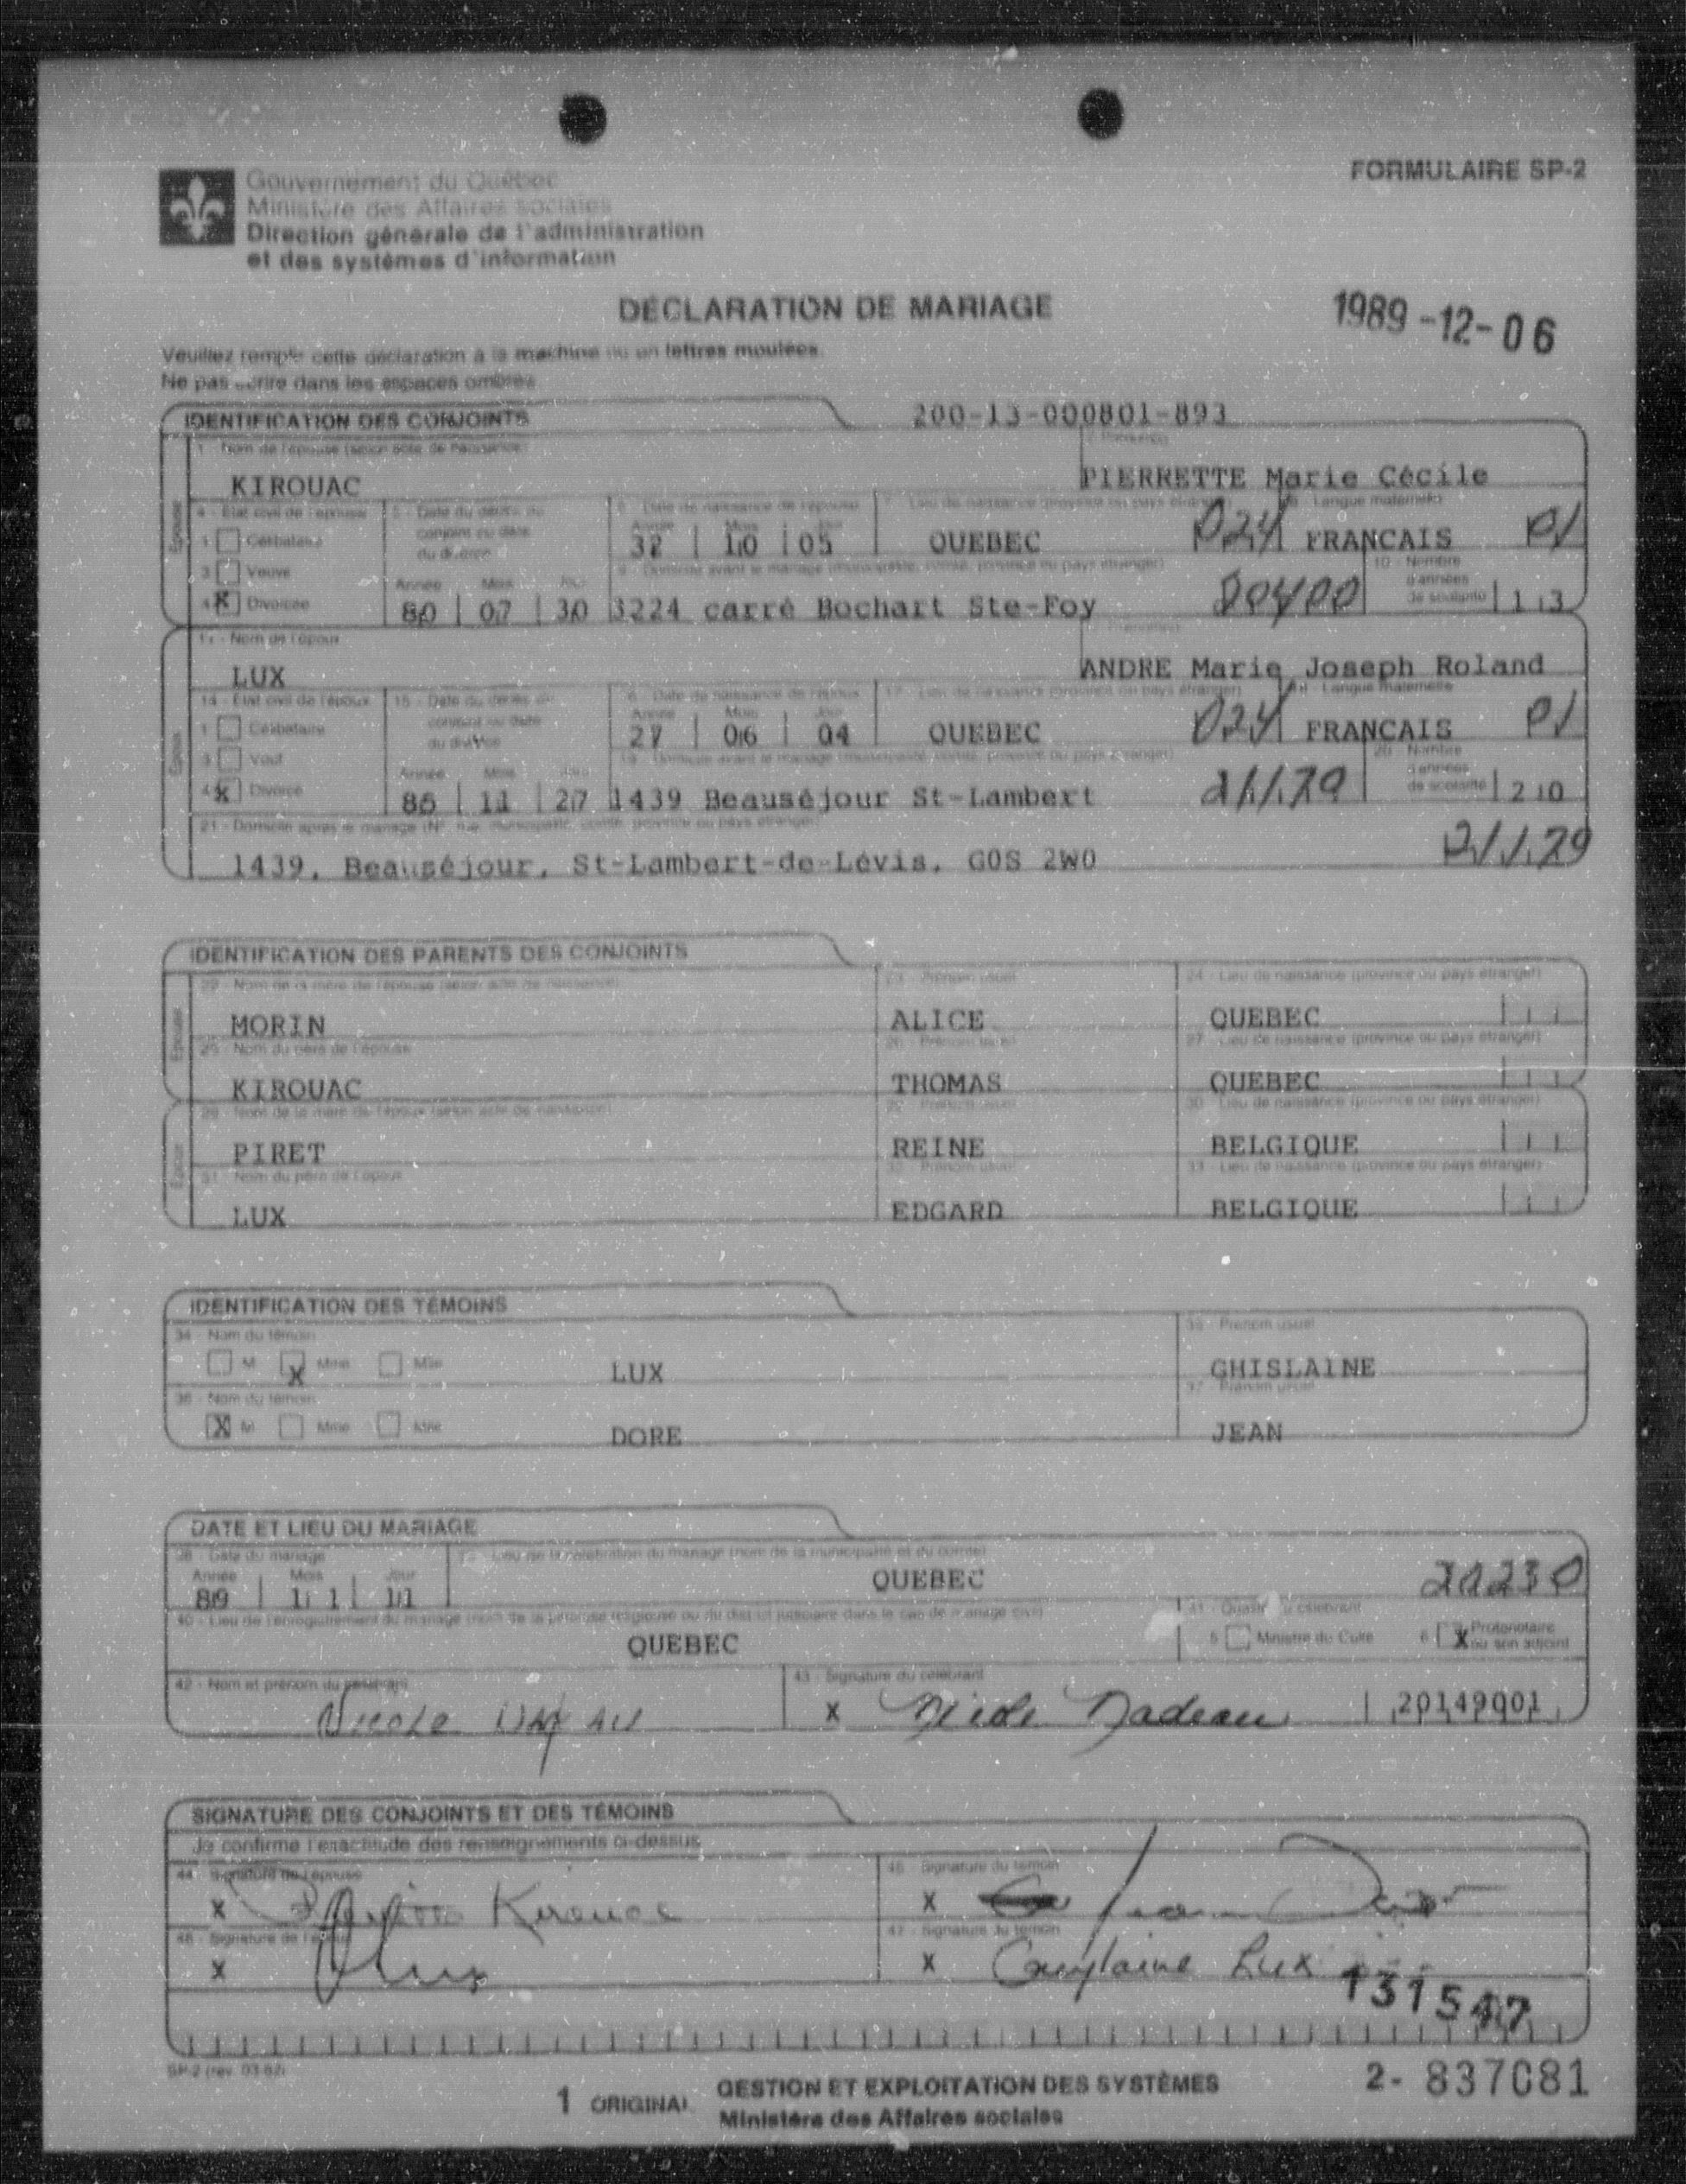 Gouvernement du Québec
Ministère des Affaires sociales
Direction générale de l'administration
et des systèmes d'information
FORMULAIRE SP-2
DÉCLARATION DE MARIAGE
1989-12-06
Veuillez remplir cette déclaration à la machine ou en lettres moulées.
Ne pas écrire dans les espaces ombrés
IDENTIFICATION DES CONJOINTS
200-13-000801-893
1 - Nom de l'épouse (selon acte de naissance)
KIROUAC
PIERRETTE Marie Cécile
4 - État civil de l'épouse
5 - Date du décès du conjoint ou date du divorce
6 - Date de naissance de l'épouse
7 - Lieu de naissance (province ou pays étranger)
8 - Langue maternelle
1 Célibataire
Année Mois Jour
32 10 05
QUEBEC
024
FRANCAIS
01
3 Veuve
9 - Domicile avant le mariage (municipalité, comté, province ou pays étranger)
10 - Nombre d'années de scolarité
4 X Divorcée
Année Mois Jour
80 07 30
3224 carré Bochart Ste-Foy
20400
13
11 - Nom de l'époux
LUX
ANDRE Marie Joseph Roland
14 - État civil de l'époux
15 - Date du décès du conjoint ou date du divorce
16 - Date de naissance de l'époux
17 - Lieu de naissance (province ou pays étranger)
18 - Langue maternelle
1 Célibataire
Année Mois Jour
27 06 04
QUEBEC
024
FRANCAIS
01
3 Veuf
19 - Domicile avant le mariage (municipalité, comté, province ou pays étranger)
20 - Nombre d'années de scolarité
4 X Divorcé
Année Mois Jour
11 27
1439 Beauséjour St-Lambert
21179
20
21 - Domicile après le mariage (N°, rue, municipalité, comté, province ou pays étranger)
1439, Beauséjour, St-Lambert-de-Lévis, G0S 2W0
21179
IDENTIFICATION DES PARENTS DES CONJOINTS
22 - Nom de la mère de l'épouse (selon acte de naissance)
23 - Prénom usuel
24 - Lieu de naissance (province ou pays étranger)
MORIN
ALICE
QUEBEC
25 - Nom du père de l'épouse
26 - Prénom usuel
27 - Lieu de naissance (province ou pays étranger)
KIROUAC
THOMAS
QUEBEC
28 - Nom de la mère de l'époux (selon acte de naissance)
29 - Prénom usuel
30 - Lieu de naissance (province ou pays étranger)
PIRET
REINE
BELGIQUE
31 - Nom du père de l'époux
32 - Prénom usuel
33 - Lieu de naissance (province ou pays étranger)
LUX
EDGARD
BELGIQUE
IDENTIFICATION DES TÉMOINS
34 - Nom du témoin
35 - Prénom usuel
M X Mme Mlle
LUX
GHISLAINE
36 - Nom du témoin
37 - Prénom usuel
X M Mme Mlle
DORE
JEAN
DATE ET LIEU DU MARIAGE
38 - Date du mariage
39 - Lieu de la célébration du mariage (nom de la municipalité et du comté)
Année Mois Jour
89 11 11
QUEBEC
40 - Lieu de l'enregistrement du mariage (nom de la paroisse religieuse ou du district judiciaire dans le cas de mariage civil)
41 - Qualité du célébrant
QUEBEC
5 Ministre du Culte
6 X Protonotaire ou son adjoint
42 - Nom et prénom du célébrant
43 - Signature du célébrant
Nicole
x Nicole Nadeau
20149001
SIGNATURE DES CONJOINTS ET DES TÉMOINS
Je confirme l'exactitude des renseignements ci-dessus
44 - Signature de l'épouse
46 - Signature du témoin
x Kirouac
x Jean
45 - Signature de l'époux
47 - Signature du témoin
x
x Lux
SP-2 (rev. 03-82)
1 ORIGINAL
GESTION ET EXPLOITATION DES SYSTÈMES
Ministère des Affaires sociales
2- 837081